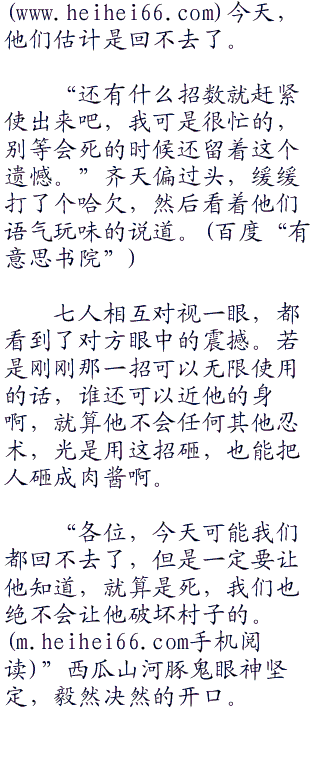 (www.heihei66.com)今天，
他们估计是回不去了。
“还有什么招数就赶紧
使出来吧，我可是很忙的，
别等会死的时候还留着这个
遗憾。”齐天偏过头，缓缓
打了个哈欠，然后看着他们
语气玩味的说道。(百度“有
意思书院”)
七人相互对视一眼，都
看到了对方眼中的震撼。若
是刚刚那一招可以无限使用
的话，谁还可以近他的身
啊，就算他不会任何其他忍
术，光是用这招砸，也能把
人砸成肉酱啊。
“各位，今天可能我们
都回不去了，但是一定要让
他知道，就算是死，我们也
绝不会让他破坏村子的。
(m.heihei66.com手机阅
读)”西瓜山河豚鬼眼神坚
定，毅然决然的开口。